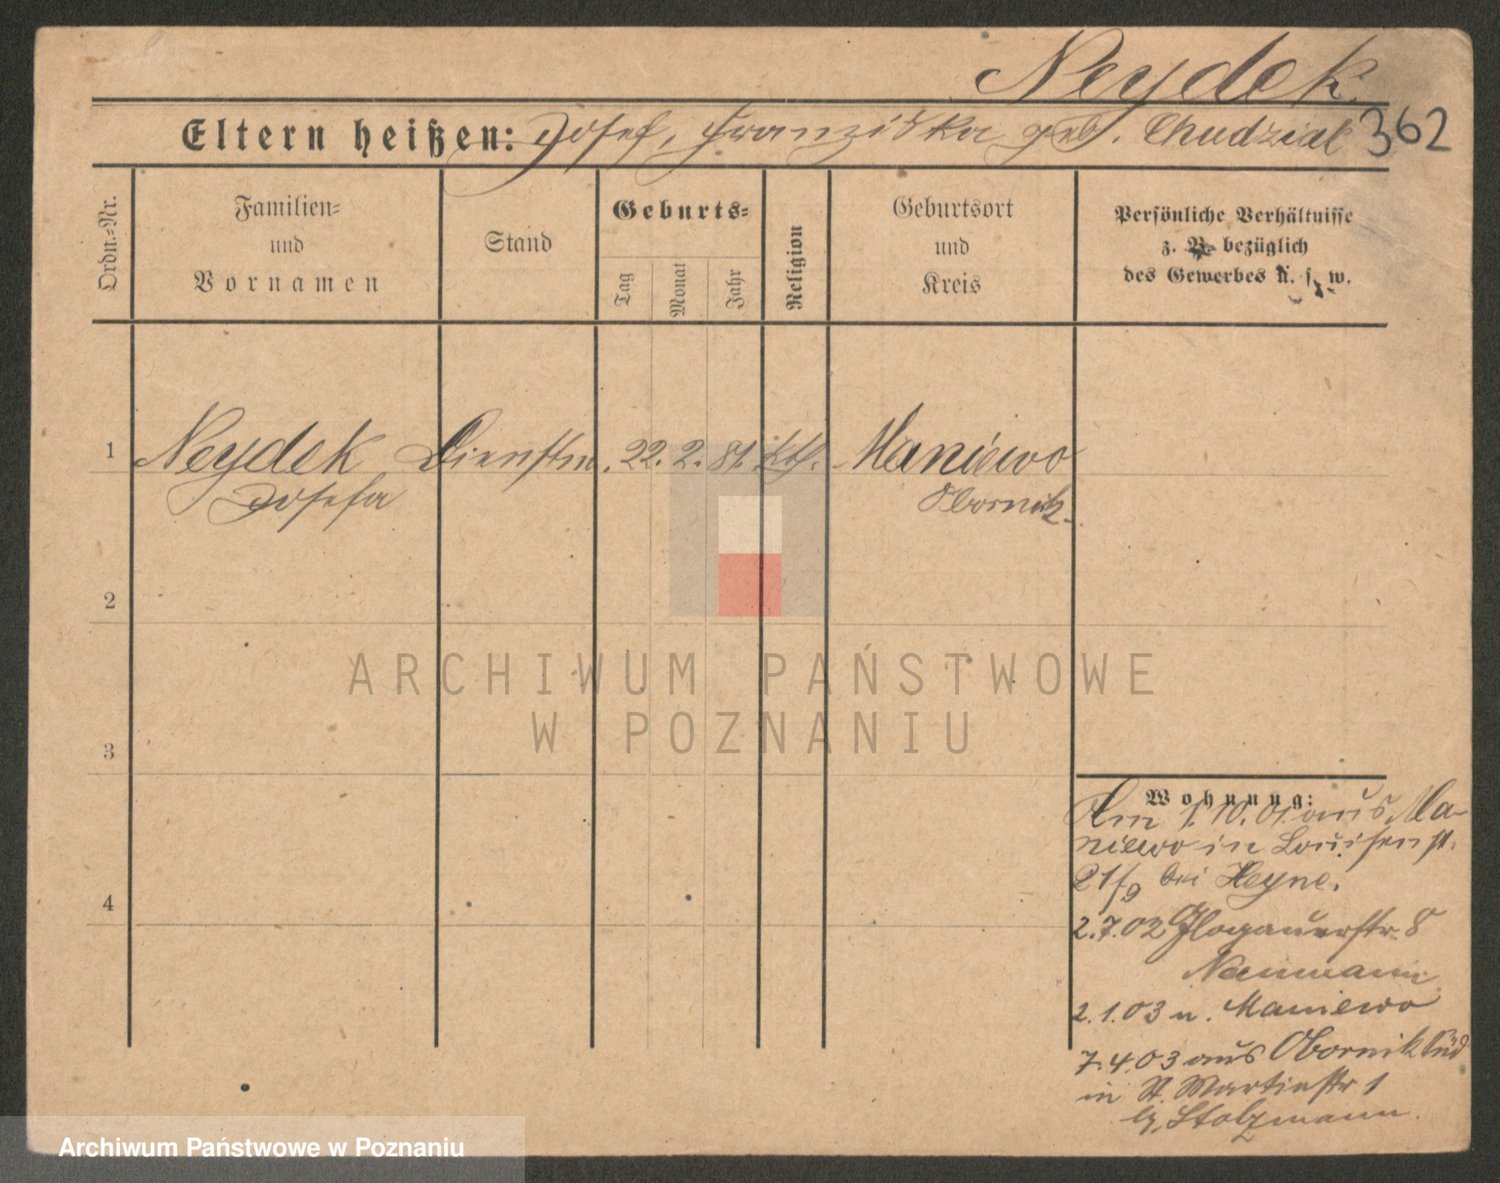 Neydek.
Eltern heißen: Josef, Franziska geb. Chudziak 362
Ordn.-Nr.
Familien-
und
Vornamen
Stand
Geburts-
Tag
Monat
Jahr
Religion
Geburtsort
und
Kreis
Persönliche Verhältnisse
z. B. bezüglich
des Gewerbes u. s. w.
1 Neydek Dienstm. 22. 2. 81. kth. Maniewo
Josefa Obornik.
2
ARCHIWUM PAŃSTWOWE
W POZNANIU
3
Wohnung:
Am 1.10.01. aus Ma-
niewo in Louisenst.
21/9 bei Heyne.
2.7.02 Glogauerstr. 8
Naumann
2.1.03 n. Maniewo
7.4.03 aus Obornik
in St. Martinstr 1
b. Stolzmann.
4
Archiwum Państwowe w Poznaniu